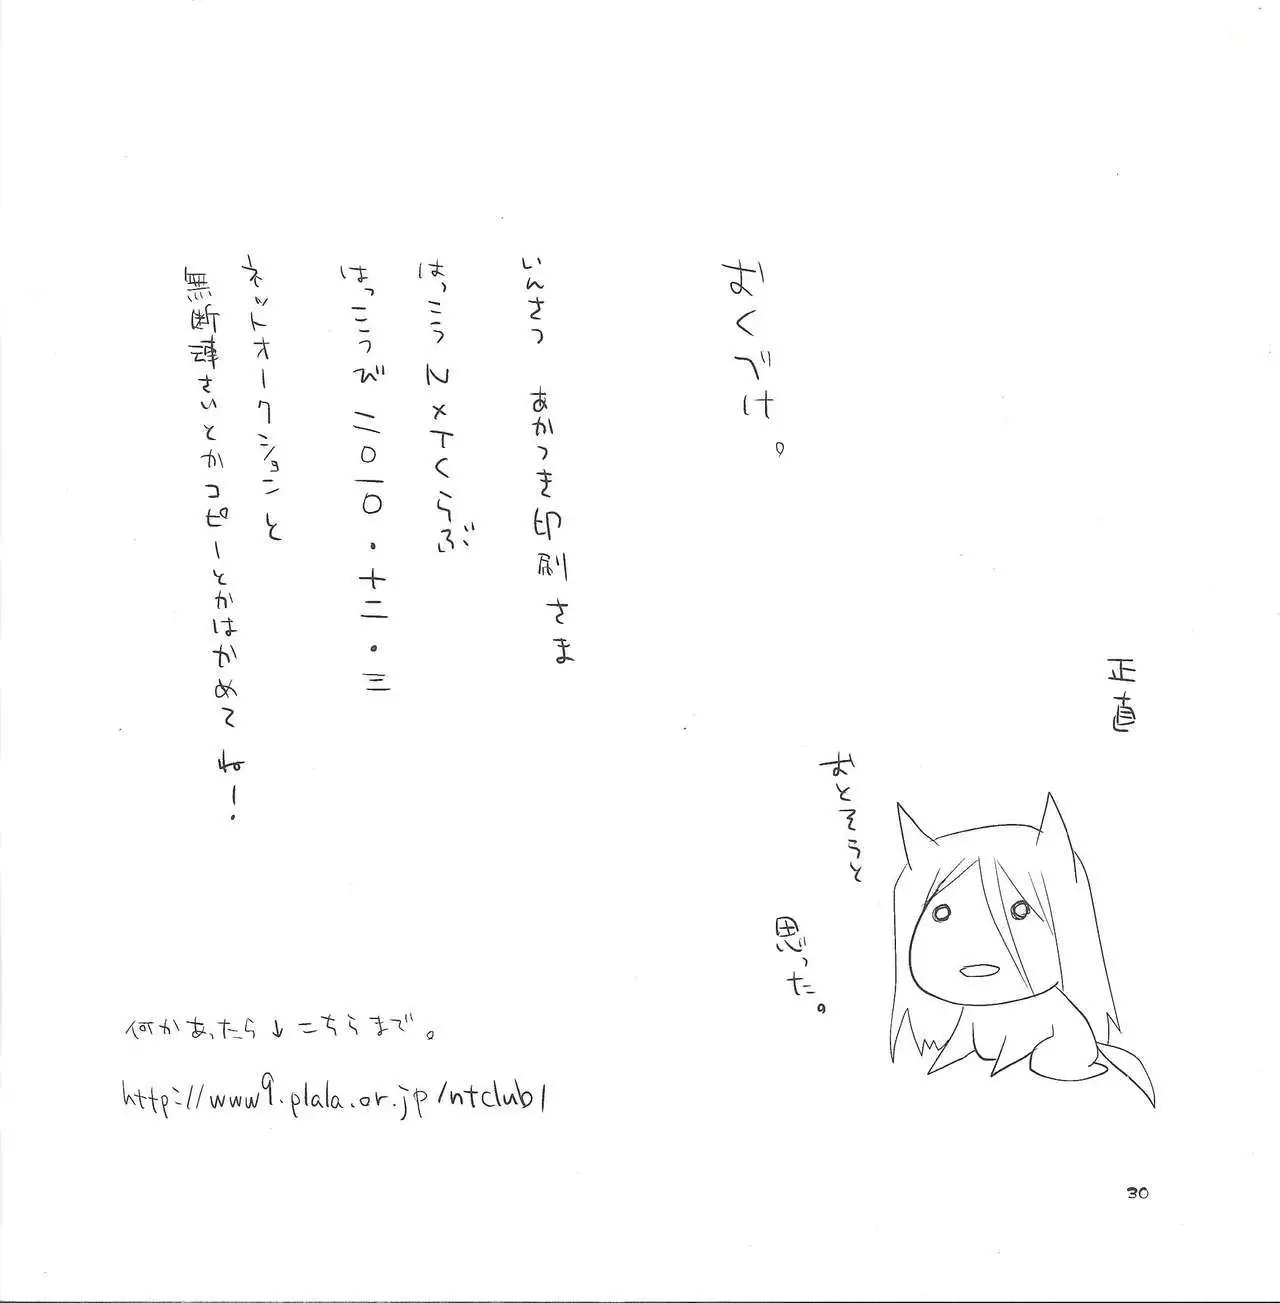 正直
おとそうと
思った。
おくづけ。
いんさつ あかつき印刷さま
はっこう N×Tくらぶ
はっこうび 二〇一〇・十二・三
ネットオークションと
無断転さいとかコピーとかはかめてね!
何かあったら↓こちらまで。
http://www9.plala.or.jp/ntclub/
30